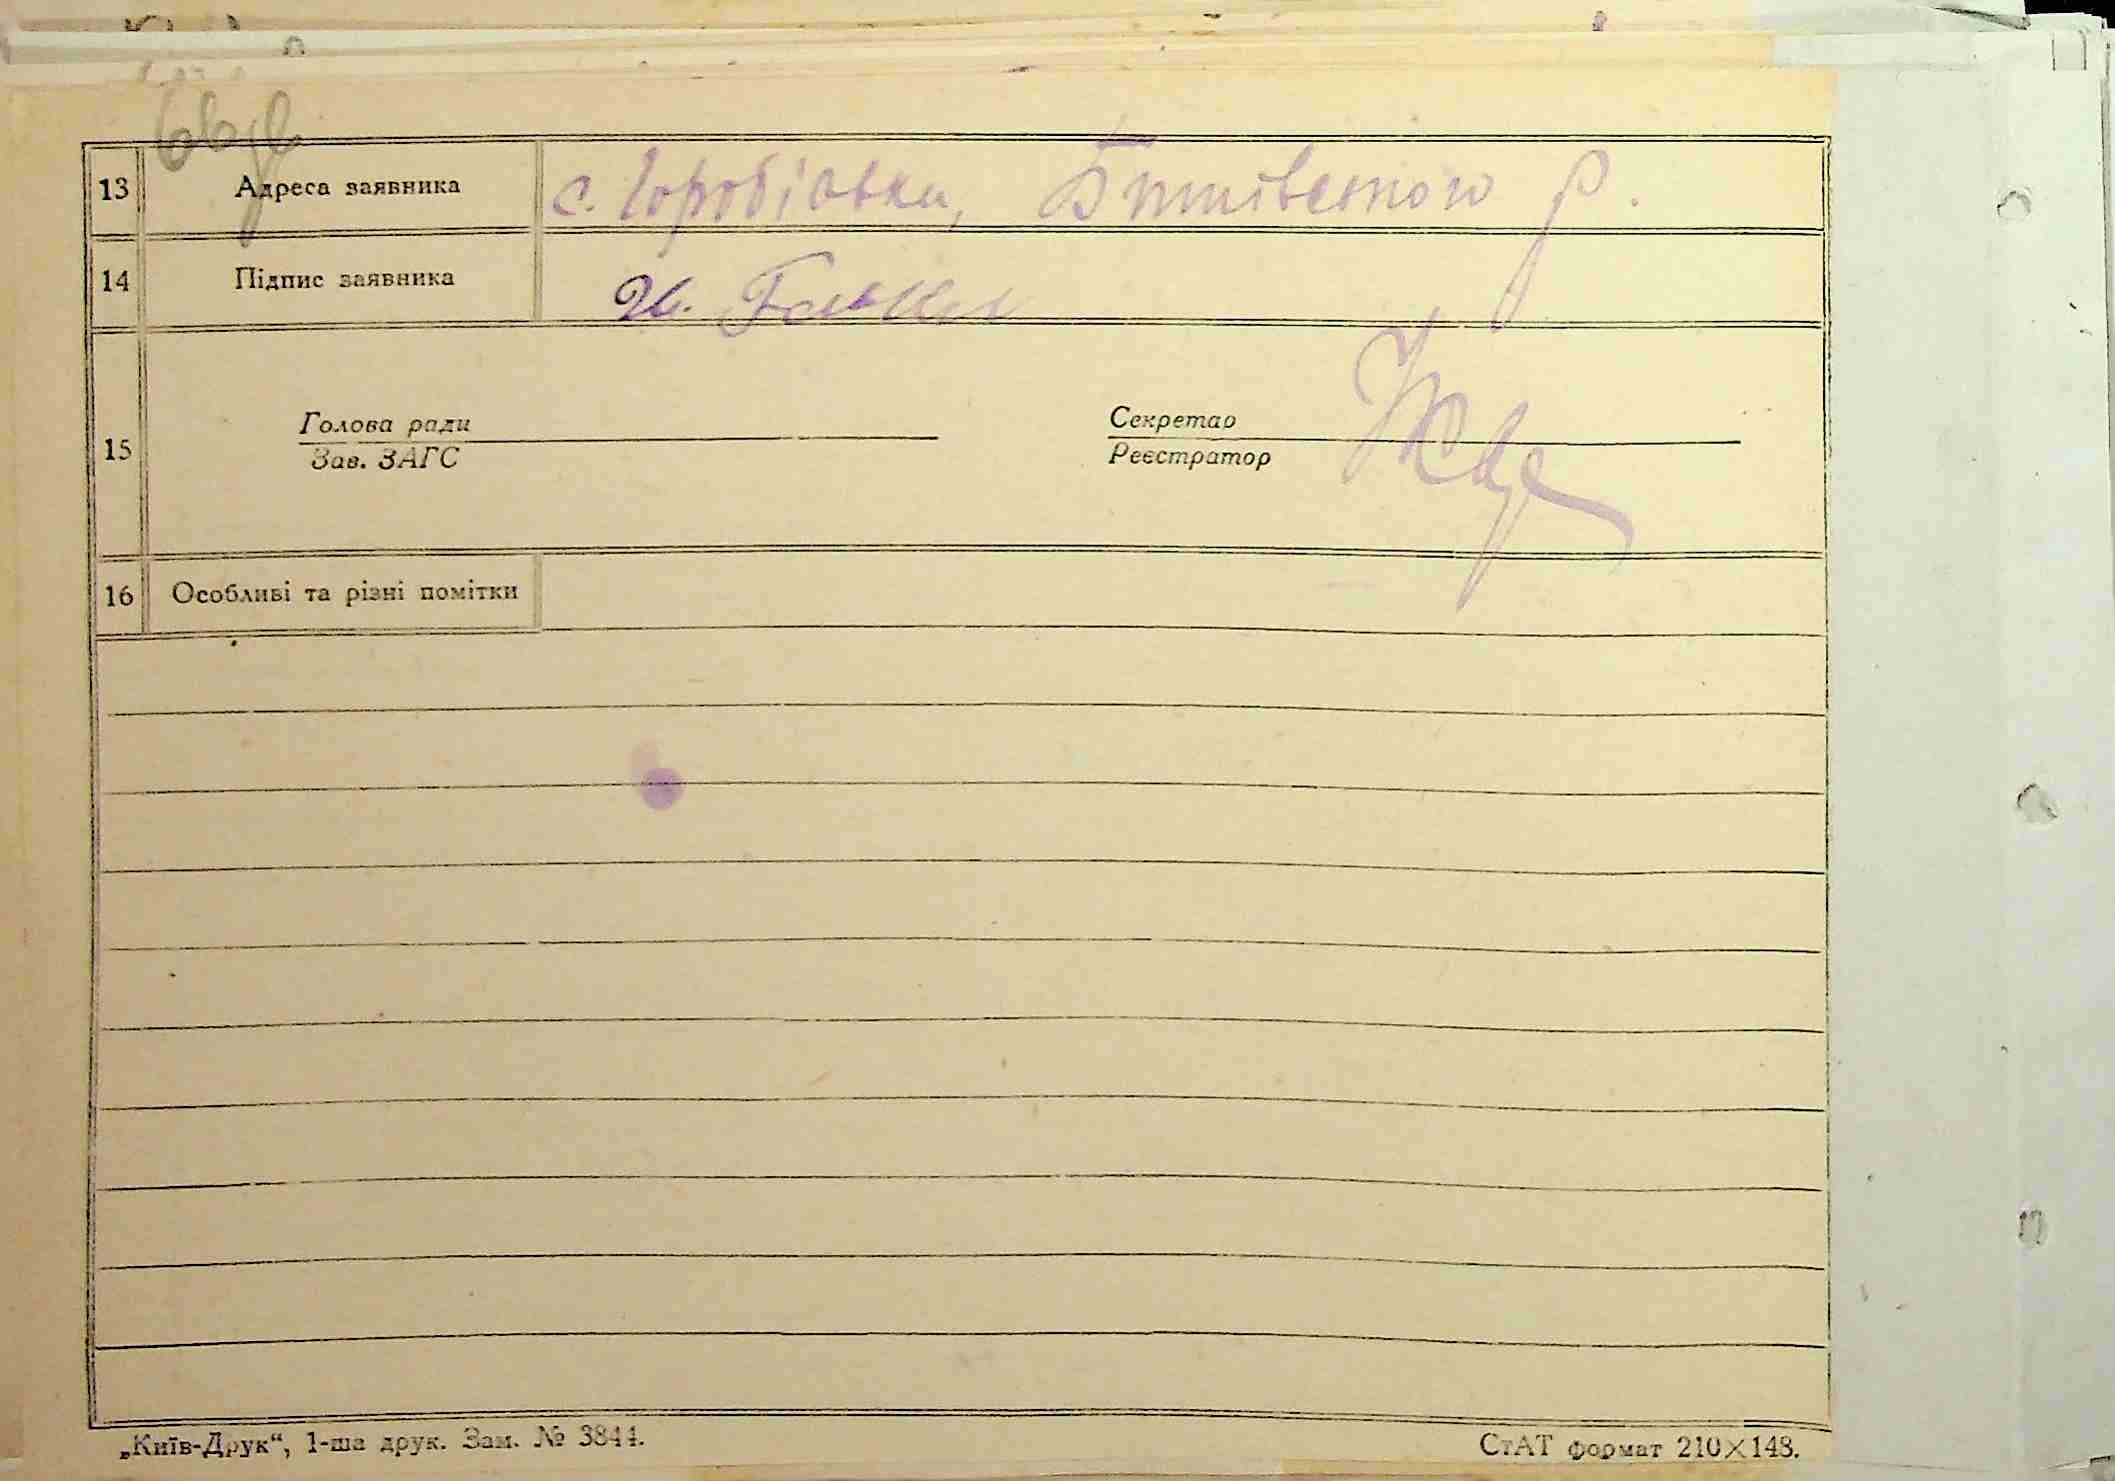 13 Адреса заявника с. Горобіовка, Білилівського р.
14 Підпис заявника
15 Голова ради Секретар
Зав. ЗАГС Реєстратор
16 Особливі та різні помітки
„Київ-Друк“, 1-ша друк. Зам. № 3844.
СтАТ формат 210×148.